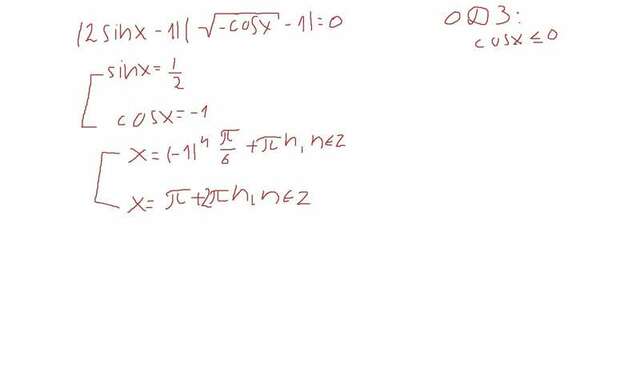 (2sinx-1)(√-cosx - 1)=0
ОДЗ:
cosx ≤ 0
sinx = 1/2
cosx = -1
x = (-1)ⁿ π/6 + πn, n∈Z
x = π + 2πn, n∈Z